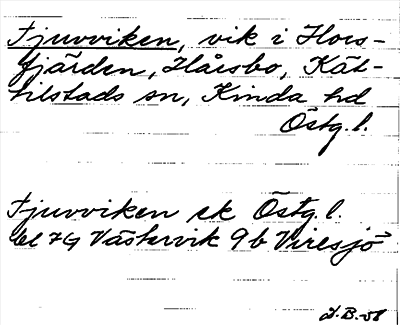 Tjuvviken, vik i Hors-
fjärden, Hårsbo, Kät-
tilstads sn, Kinda hd
Östg.l.
Tjuvviken ek Östg.l.
bl 7G Västervik 9b Viresjö